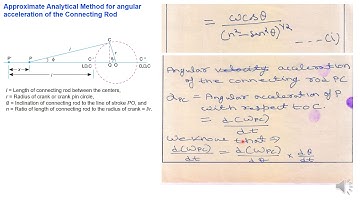 Approximate Analytical Method for angular
acceleration of the Connecting Rod
l = Length of connecting rod between the centers,
r = Radius of crank or crank pin circle,
θ = Inclination of connecting rod to the line of stroke PO, and
n = Ratio of length of connecting rod to the radius of crank = l/r.
= ωcosθ / (n²-sin²θ)^1/2 ---(i)
Angular velocity acceleration
of the connecting rod PC
αPC = Angular acceleration of P
with respect to C.
= d(ωPC)/dt
We know that
d(ωPC)/dt = d(ωPC)/dθ × dθ/dt